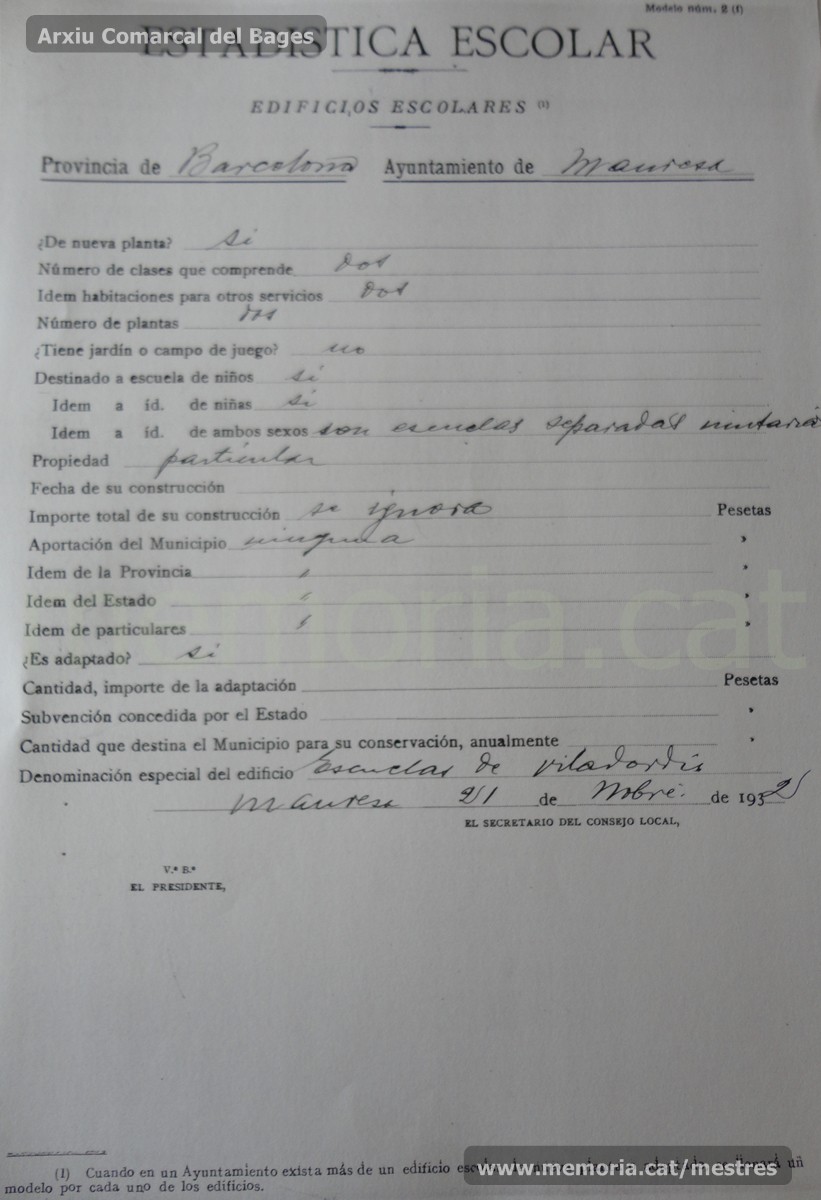 Modelo núm. 2 (f)
Arxiu Comarcal del Bages
ESTADISTICA ESCOLAR
EDIFICIOS ESCOLARES (1)
Provincia de Barcelona Ayuntamiento de Manresa
¿De nueva planta? si
Número de clases que comprende dos
Idem habitaciones para otros servicios dos
Número de plantas dos
¿Tiene jardín o campo de juego? no
Destinado a escuela de niños sí
Idem a id. de niñas si
Idem a id. de ambos sexos son escuelas separadas unitarias
Propiedad particular
Fecha de su construcción
Importe total de su construcción se ignora Pesetas
Aportación del Municipio ninguna »
Idem de la Provincia " »
Idem del Estado " »
Idem de particulares " »
¿Es adaptado? si
Cantidad, importe de la adaptación Pesetas
Subvención concedida por el Estado »
Cantidad que destina el Municipio para su conservación, anualmente »
Denominación especial del edificio Escuelas de Viladordis
Manresa 21 de Nobre. de 1932
EL SECRETARIO DEL CONSEJO LOCAL,
V.º B.º
EL PRESIDENTE,
memoria.cat
(1) Cuando en un Ayuntamiento exista más de un edificio un
modelo por cada uno de los edificios.
www.memoria.cat/mestres